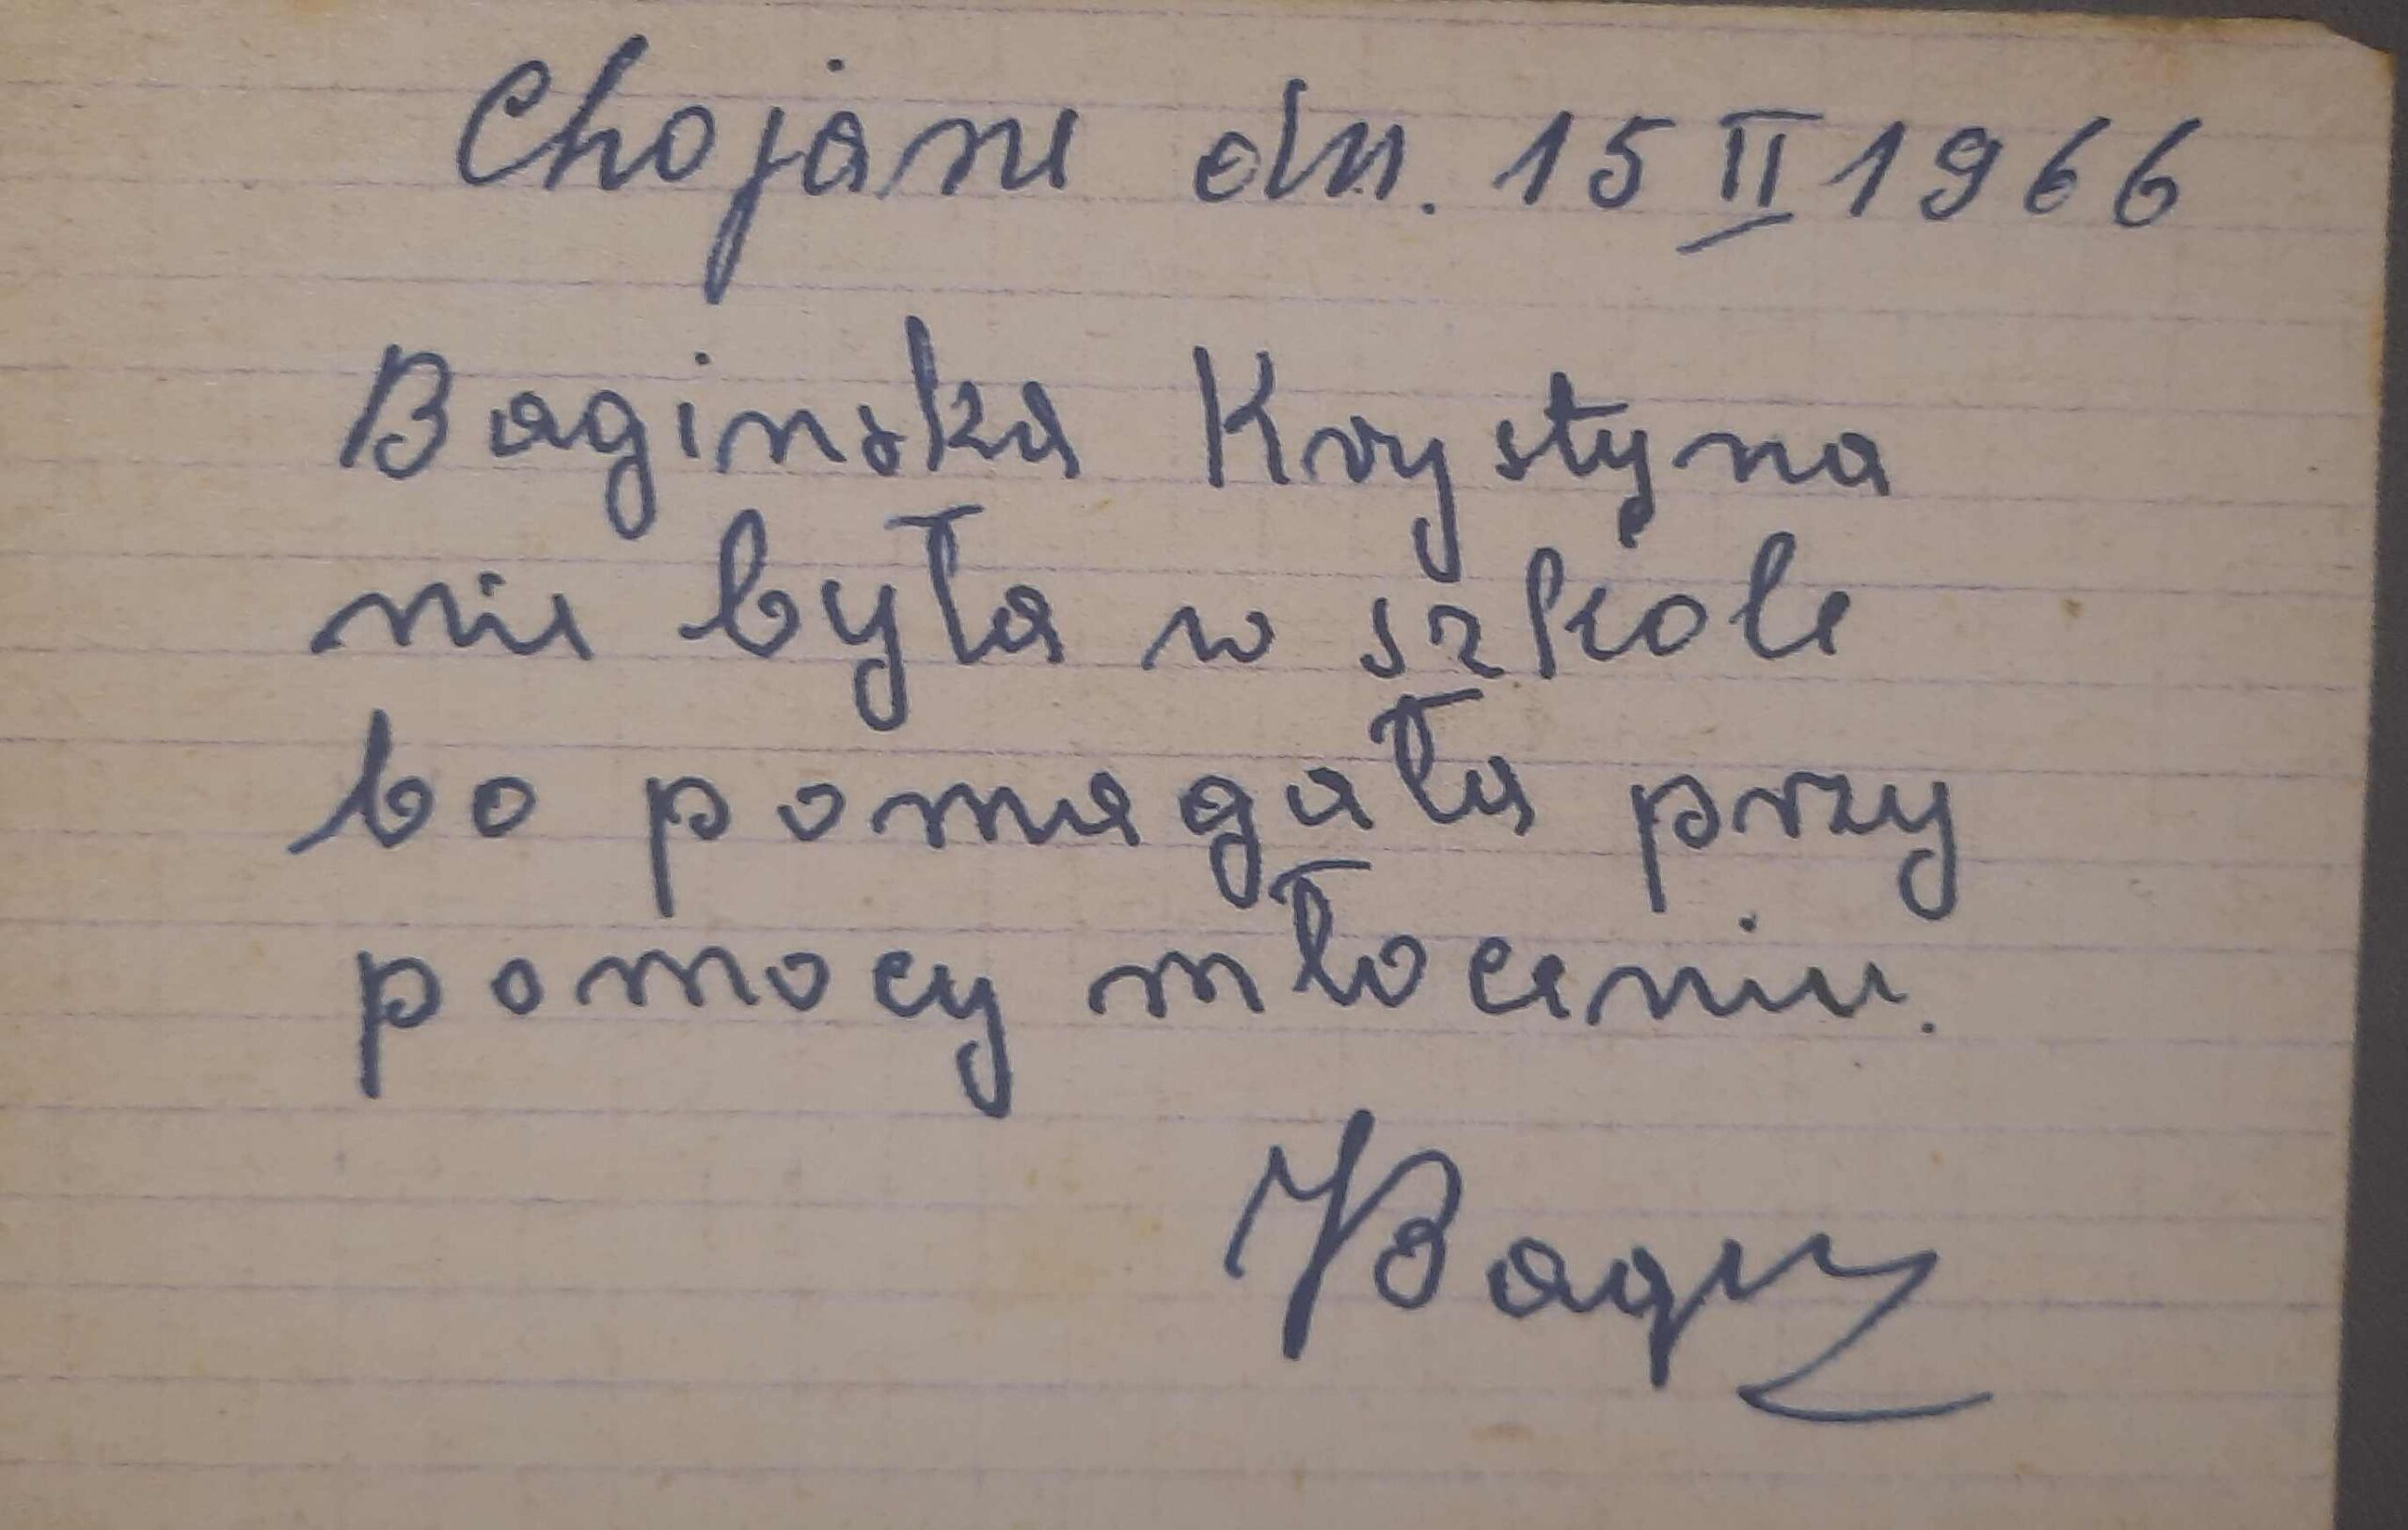 Chojane dn. 15 II 1966
Baginska Krystyna
nie była w szkole
bo pomagała przy
pomocy młoceniu.